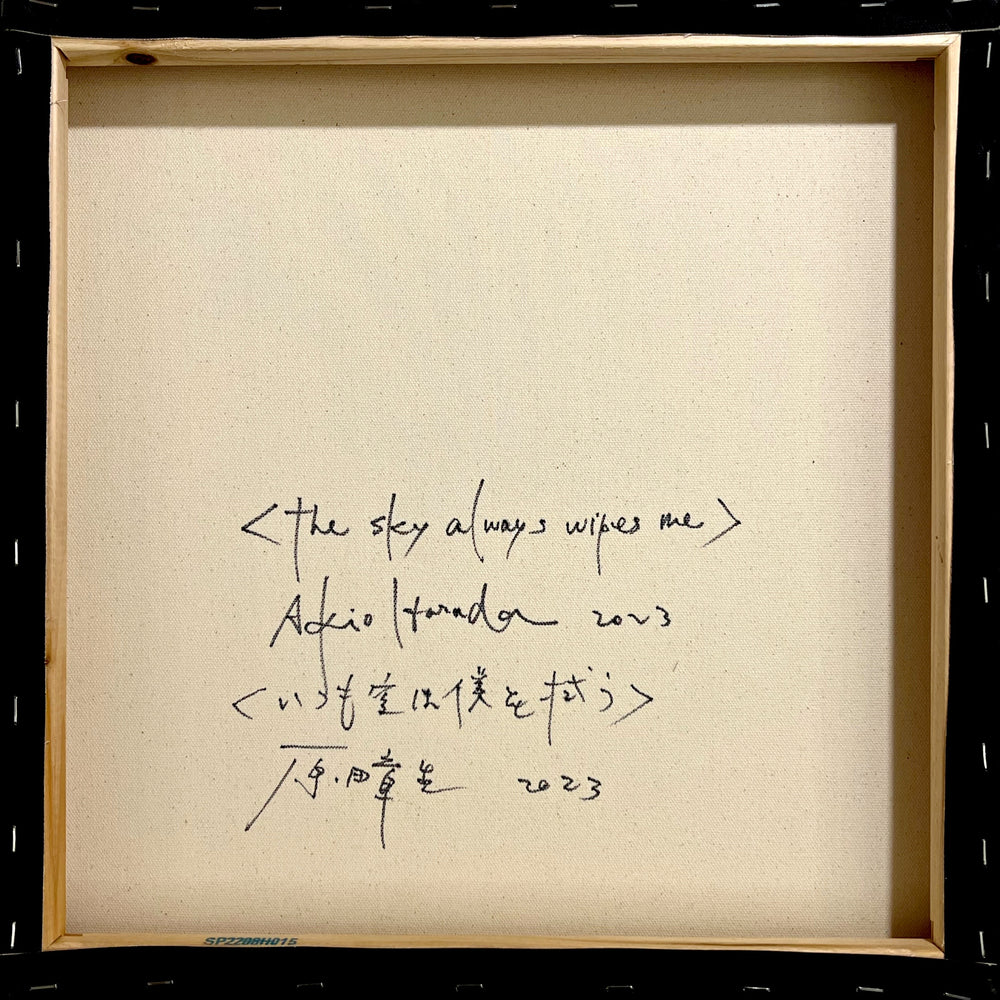 <the sky always wipes me>
Akio Harada 2023
<いつも空は僕を拭う>
原田章生 2023
SP2208H015